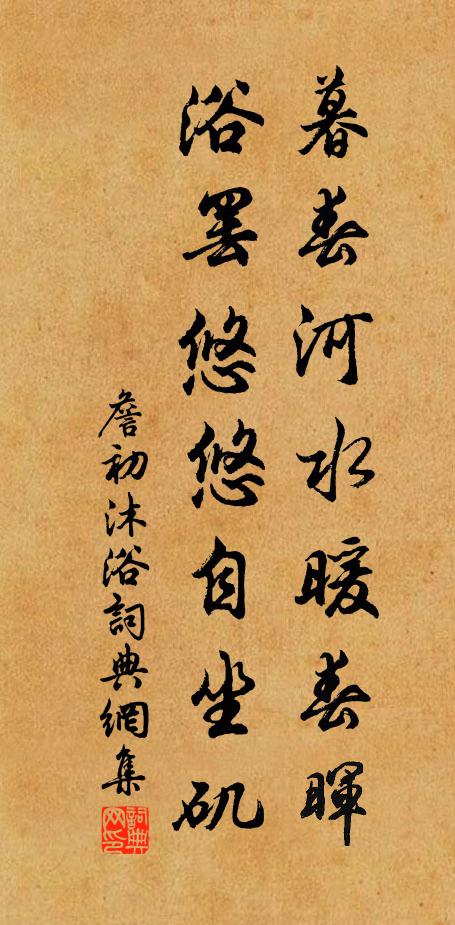 暮春河水暖春暉
浴罷悠悠自坐矶
詹初沐浴詞典網集
詞典网印